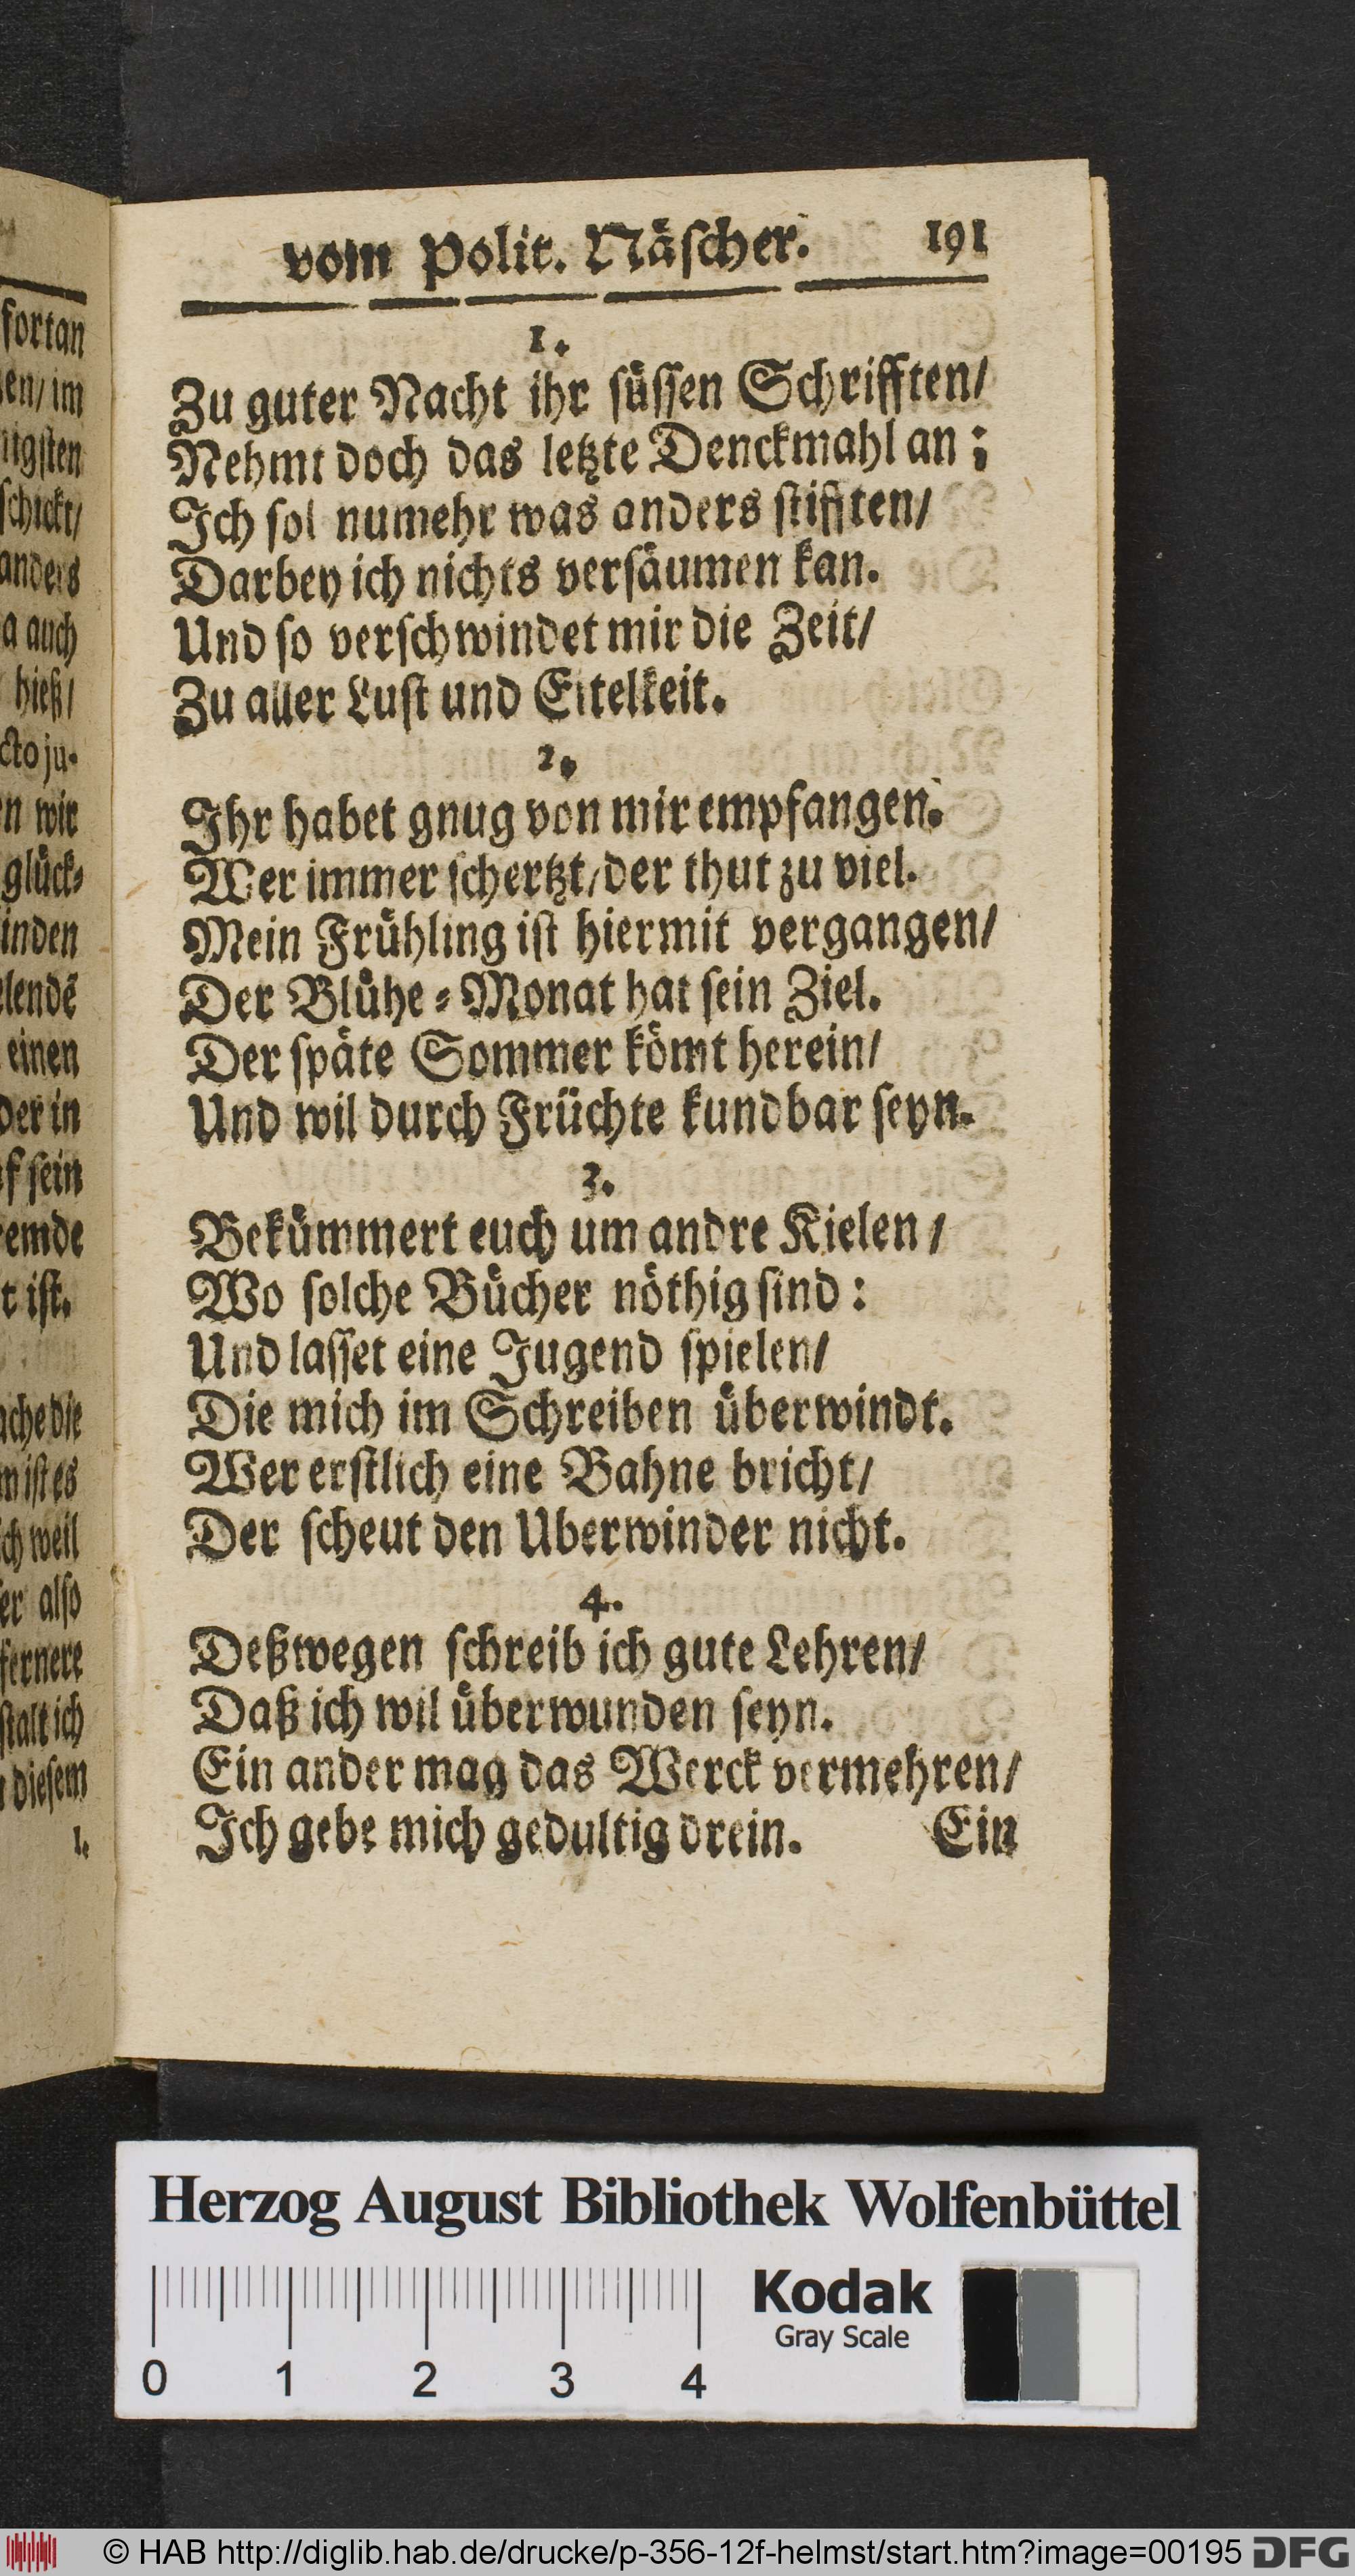 vom Polit. Näscher. 191
1.
Zu guter Nacht ihr süssen Schrifften/
Nehmt doch das letzte Denckmahl an;
Ich sol numehr was anders stifften/
Darbey ich nichts versäumen kan.
Und so verschwindet mir die Zeit/
Zu aller Lust und Eitelkeit.
2.
Ihr habet gnug von mir empfangen.
Wer immer schertzt/der thut zu viel.
Mein Frühling ist hiermit vergangen/
Der Blühe-Monat hat sein Ziel.
Der späte Sommer kömt herein/
Und wil durch Früchte kundbar seyn.
3.
Bekümmert euch um andre Kielen/
Wo solche Bücher nöthig sind:
Und lasset eine Jugend spielen/
Die mich im Schreiben überwindt.
Wer erstlich eine Bahne bricht/
Der scheut den Uberwinder nicht.
4.
Deßwegen schreib ich gute Lehren/
Daß ich wil überwunden seyn.
Ein ander mag das Werck vermehren/
Ich gebe mich gedultig drein. Ein
fortan
en/im
schickt/
anders
a auch
hieß/
cto ju-
n wir
glück-
inden
lendē
einen
der in
f sein
emde
t ist.
ache die
n ist es
ch weil
er also
fernere
stalt ich
diesem
1.
Herzog August Bibliothek Wolfenbüttel
Kodak
Gray Scale
0 1 2 3 4
© HAB http://diglib.hab.de/drucke/p-356-12f-helmst/start.htm?image=00195 DFG